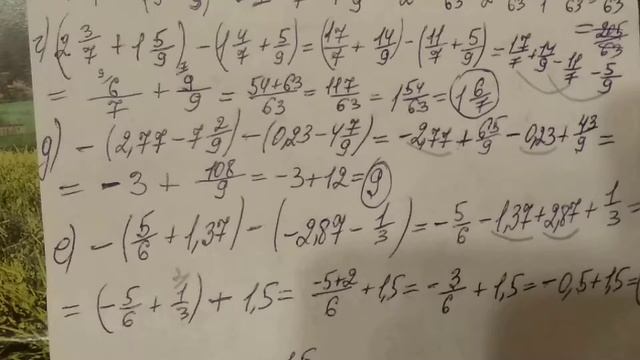 г) (2 3/7 + 1 5/9) - (1 4/7 + 5/9) = (17/7 + 14/9) - (11/7 + 5/9) = 17/7 + 14/9 - 11/7 - 5/9
= 6/7 + 9/9 = 54+63/63 = 117/63 = 1 54/63 = 1 6/7
д) - (2,77 - 7 2/9) - (0,23 - 4 7/9) = -2,77 + 65/9 - 0,23 + 43/9 =
= -3 + 108/9 = -3 + 12 = 9
е) - (5/6 + 1,37) - (-2,87 - 1/3) = - 5/6 - 1,37 + 2,87 + 1/3 =
= (- 5/6 + 1/3) + 1,5 = -5+2/6 + 1,5 = - 3/6 + 1,5 = -0,5 + 1,5 =